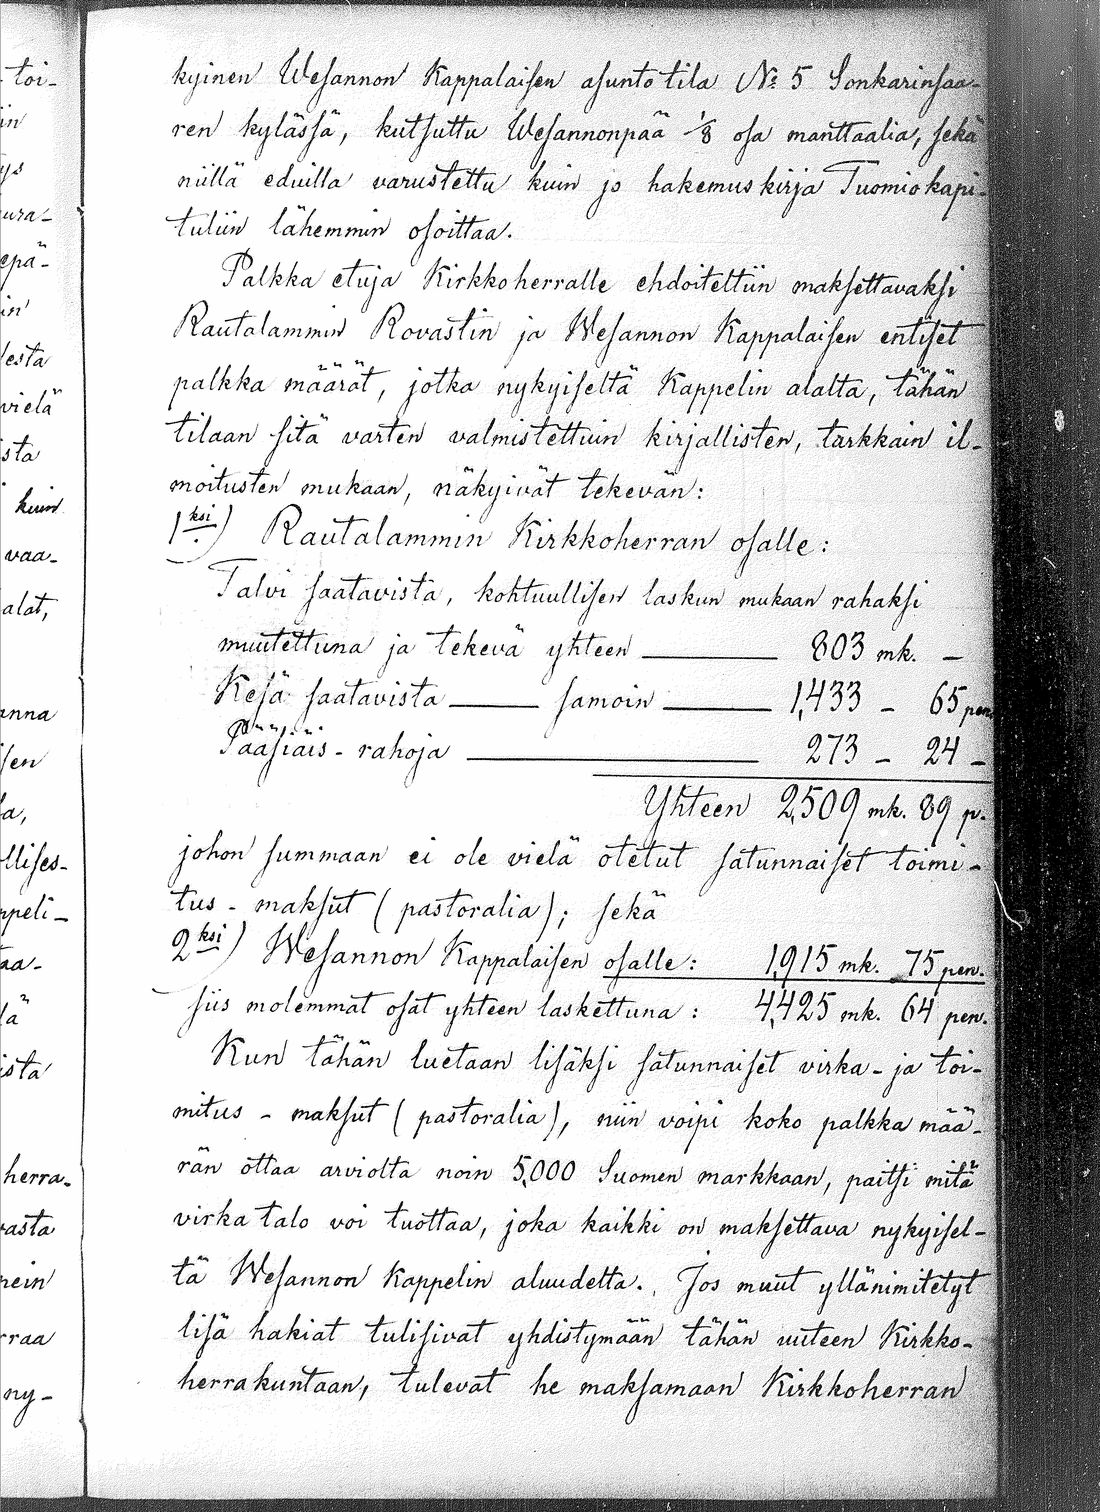 kyinen Wesannon Kappalaisen asunto tila No 5 Sonkarinsaa-
ren kylässä, kutsuttu Wesannonpää 1/8 osa manttaalia, sekä
niillä eduilla varustettu kuin jo hakemus kirja Tuomiokapi-
tuliin lähemmin osoittaa.
Palkka etuja Kirkkoherralle ehdoitettiin maksettavaksi
Rautalammin Rovastin ja Wesannon Kappalaisen entiset
palkka määrät, jotka nykyiseltä Kappelin alalta, tähän
tilaan sitä varten valmistettuin kirjallisten, tarkkain il-
moitusten mukaan, näkyivät tekevän:
1ksi) Rautalammin Kirkkoherran osalle:
Talvi saatavista, kohtuullisen laskun mukaan rahaksi
muutettuna ja tekevä yhteen — 803 mk. —
Kesä saatavista — samoin — 1,433 — 65 pen.
Pääsiäis-rahoja — 273 — 24 —
Yhteen 2,509 mk. 89 p.
johon summaan ei ole vielä otetut satunnaiset toimi-
tus-maksut (pastoralia); sekä
2ksi) Wesannon Kappalaisen osalle: 1,915 mk. 75 pen.
siis molemmat osat yhteen laskettuna: 4,425 mk. 64 pen.
Kun tähän luetaan lisäksi satunnaiset virka- ja toi-
mitus-maksut (pastoralia), niin voipi koko palkka mää-
rän ottaa arviolta noin 5,000 Suomen markkaan, paitsi mitä
virka talo voi tuottaa, joka kaikki on maksettava nykyisel-
tä Wesannon Kappelin aluudetta. Jos muut yllänimitetyt
lisä hakiat tulisivat yhdistymään tähän uuteen Kirkko-
herrakuntaan, tulevat he maksamaan Kirkkoherran